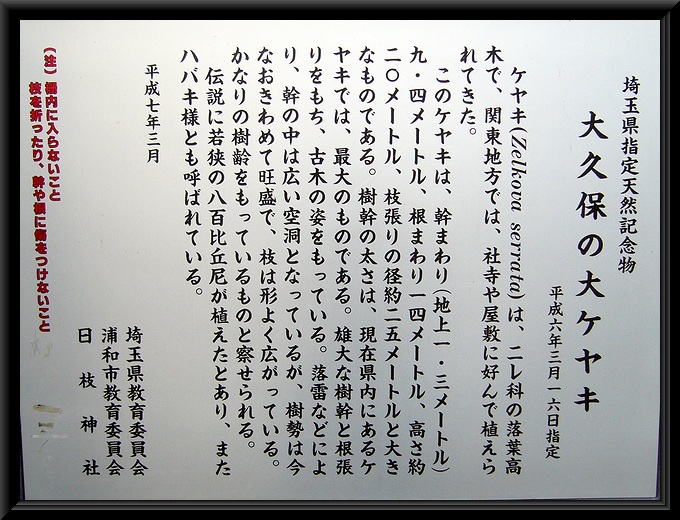 埼玉県指定天然記念物
大久保の大ケヤキ
平成六年三月一六日指定
ケヤキ(Zelkova serrata)は、ニレ科の落葉高
木で、関東地方では、社寺や屋敷に好んで植えら
れてきた。
このケヤキは、幹まわり(地上一・三メートル)
九・四メートル、根まわり一四メートル、高さ約
二〇メートル、枝張りの径約二五メートルと大き
なものである。樹幹の太さは、現在県内にあるケ
ヤキでは、最大のものである。雄大な樹幹と根張
りをもち、古木の姿をもっている。落雷などによ
り、幹の中は広い空洞となっているが、樹勢は今
なおきわめて旺盛で、枝は形よく広がっている。
かなりの樹齢をもっているものと察せられる。
伝説に若狭の八百比丘尼が植えたとあり、また
ハバキ様とも呼ばれている。
平成七年三月
埼玉県教育委員会
浦和市教育委員会
日枝神社
(注)柵内に入らないこと
枝を折ったり、幹や根に傷をつけないこと